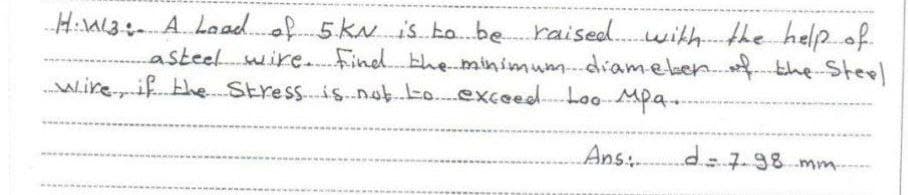 H.W3:- A Load of 5 KN is to be raised with the help of
a steel wire. Find the minimum diameter of the Steel
wire, if the Stress is not to exceed 100 Mpa.
Ans: d = 7.98 mm